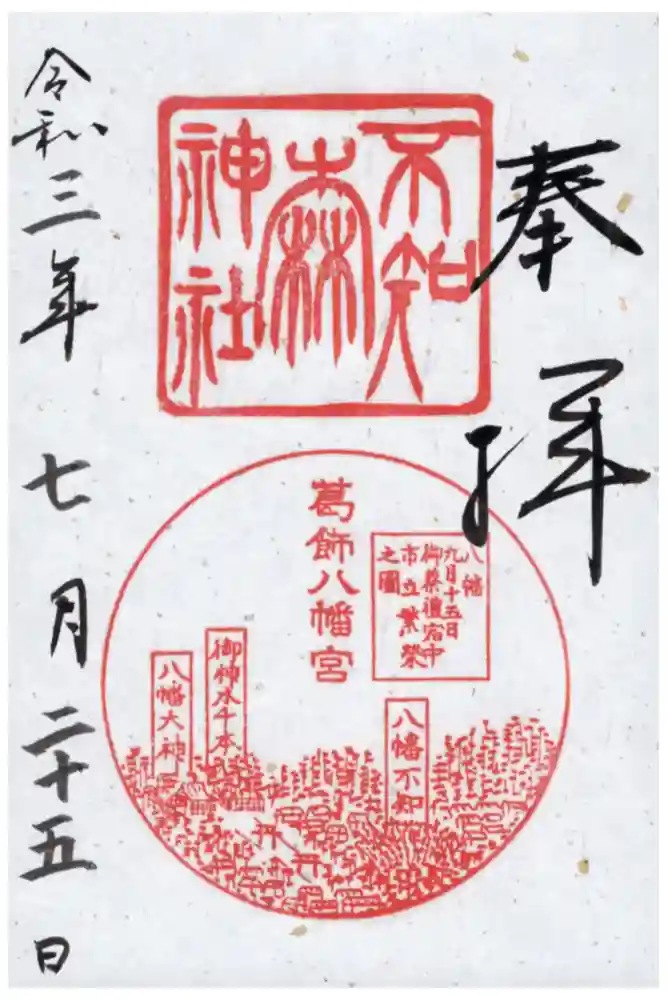 奉拝
不知
森
神社
八幡
九月十五日
御祭禮宿中
市立繁榮
之圖
葛飾八幡宮
八幡不知
御神木千本
八幡大神
令和三年七月二十五日